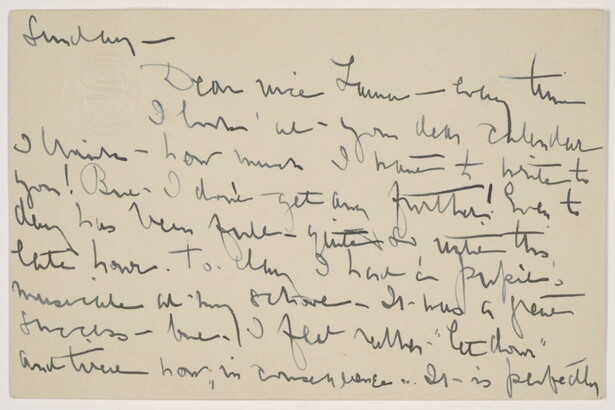 Sunday —
Dear nice Lamar — every time
I look at — your dear calendar
I think — how much I want to write to
you! But — I don't get any further! Even to
day has been full — quite so until this
late hour. To-day I had a pupil's
musicale at my school — It was a great
success — but — I feel rather "let down"
and tired now, "in consequence". It is perfectly